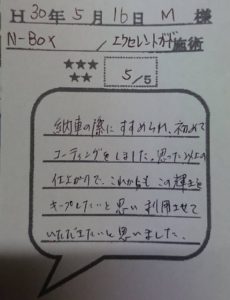 H 30年 5月 16日 M 様
N-Box / エクセレントガード施術
★★★
★★
5/5
納車の際にすすめられ、初めて
コーティングをしました。思った以上の
仕上がりで、これからも この輝きを
キープしたいと思い 利用させて
いただきたいと思いました。